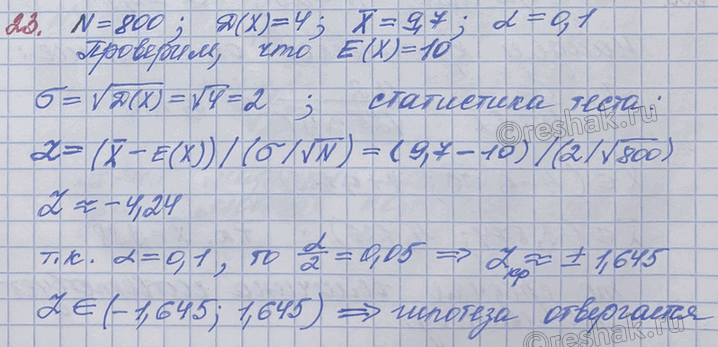 23. N=800; D(X)=4; X̄=9,7; α=0,1
Проверим, что E(X)=10
σ=√D(X)=√4=2 ; статистика теста:
Z=(X̄-E(X))/(σ/√N)=(9,7-10)/(2/√800)
Z≈-4,24
т.к. α=0,1, то α/2=0,05 ⇒ Zкр≈±1,645
Z∈(-1,645; 1,645) ⇒ гипотеза отвергается
©reshak.ru